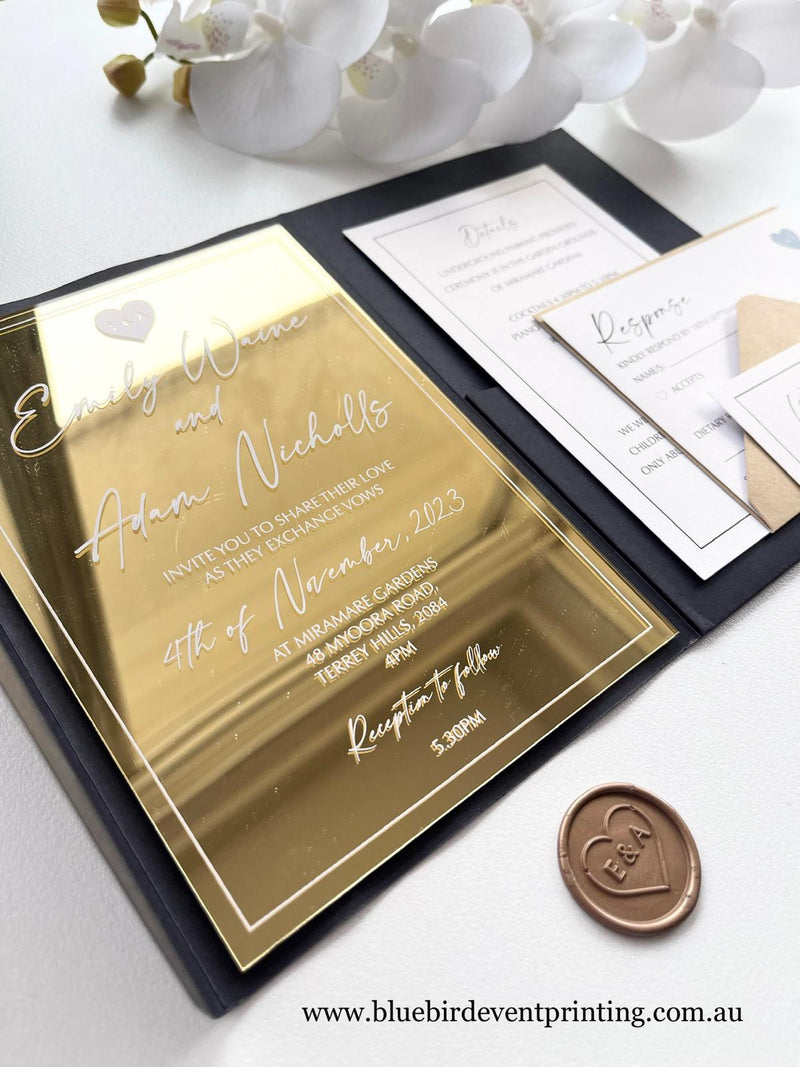 E & A
Emily Waine
and
Adam Nicholls
INVITE YOU TO SHARE THEIR LOVE
AS THEY EXCHANGE VOWS
4th of November, 2023
AT MIRAMARE GARDENS
48 MYOORA ROAD,
TERREY HILLS, 2084
4PM
Reception to follow
5.30PM
Details
UNDERGROUND PARKING PROVIDED
CEREMONY IS IN THE GARDEN GROUNDS
OF MIRAMARE GARDENS
COCKTAILS 4.30PM TO 5.30PM
WE
CHILDRE
ONLY
Response
KINDLY RESPOND BY 18TH SEPT
NAMES:
ACCEPTS
DIETARY
E & A
www.bluebirdeventprinting.com.au